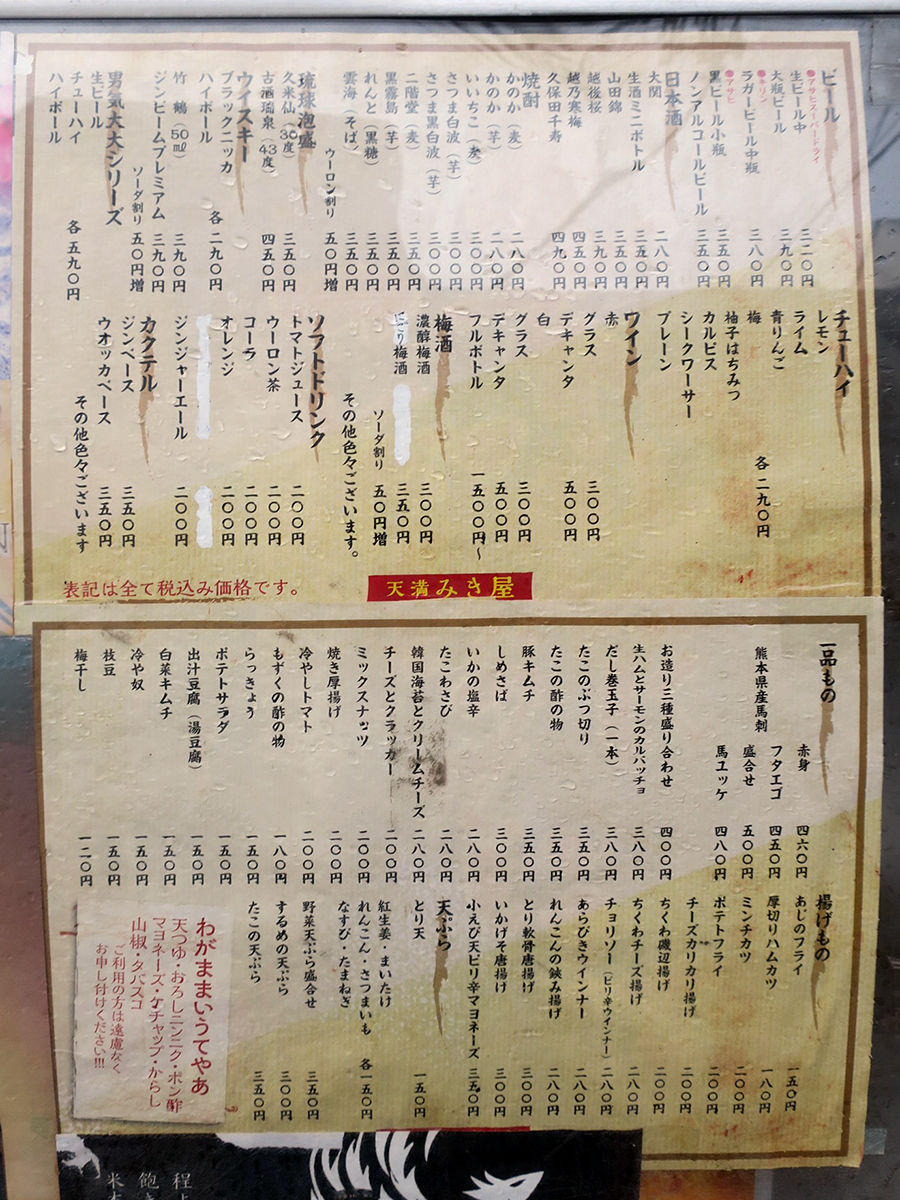 ビール
●アサヒスーパードライ
生ビール中 三二〇円
大瓶ビール 三九〇円
●キリン
ラガービール中瓶 三八〇円
●アサヒ
黒ビール小瓶 三五〇円
ノンアルコールビール 三五〇円
日本酒
大関 二八〇円
生酒ミニボトル 三五〇円
山田錦 三五〇円
越後桜 三九〇円
越乃寒梅 四五〇円
久保田千寿 四九〇円
焼酎
かのか(麦) 二八〇円
かのか(芋) 二八〇円
いいちこ(麦) 三〇〇円
さつま白波(芋) 三〇〇円
さつま黒白波(芋) 三〇〇円
二階堂(麦) 三五〇円
黒霧島(芋) 三五〇円
れんと(黒糖) 三五〇円
雲海(そば) 三五〇円
ウーロン割り 五〇円増
琉球泡盛
久米仙(30度) 三五〇円
古酒瑞泉 43度 四五〇円
ウイスキー
ブラックニッカ
ハイボール 各 二九〇円
竹鶴(50㎖) 三九〇円
ジンビームプレミアム 三九〇円
ソーダ割り 五〇円増
男気大大シリーズ
生ビール
チューハイ
ハイボール 各 五九〇円
チューハイ
レモン
ライム
青りんご
梅 各 二九〇円
柚子はちみつ
カルピス
シークワーサー
プレーン
ワイン
赤
グラス 三〇〇円
デキャンタ 五〇〇円
白
グラス 三〇〇円
デキャンタ 五〇〇円
フルボトル 一五〇〇円〜
梅酒
濃醇梅酒 三〇〇円
にごり梅酒 三五〇円
ソーダ割り 五〇円増
その他色々ございます。
ソフトドリンク
トマトジュース 二〇〇円
ウーロン茶 二〇〇円
コーラ 二〇〇円
オレンジ 二〇〇円
ジンジャーエール 二〇〇円
カクテル
ジンベース 三五〇円
ウオッカベース 三五〇円
その他色々ございます
表記は全て税込み価格です。
天満みき屋
一品もの
熊本県産馬刺
赤身 四六〇円
フタエゴ 四五〇円
盛合せ 五〇〇円
馬ユッケ 四八〇円
お造り三種盛り合わせ 四〇〇円
生ハムとサーモンのカルパッチョ 三八〇円
だし巻玉子(一本) 三八〇円
たこのぶつ切り 三五〇円
たこの酢の物 三五〇円
豚キムチ 三五〇円
しめさば 三〇〇円
いかの塩辛 二八〇円
たこわさび 二八〇円
韓国海苔とクリームチーズ 二八〇円
チーズとクラッカー 二〇〇円
ミックスナッツ 二〇〇円
焼き厚揚げ 二〇〇円
冷やしトマト 二〇〇円
もずくの酢の物 一八〇円
らっきょう 一五〇円
ポテトサラダ 一五〇円
出汁豆腐(湯豆腐) 一五〇円
白菜キムチ 一五〇円
冷や奴 一五〇円
枝豆 一五〇円
梅干し 一二〇円
揚げもの
あじのフライ 一五〇円
厚切りハムカツ 一八〇円
ミンチカツ 二〇〇円
ポテトフライ 二〇〇円
チーズカリカリ揚げ 二〇〇円
ちくわ磯辺揚げ 二〇〇円
ちくわチーズ揚げ 二八〇円
チョリソー(ピリ辛ウインナー) 二八〇円
あらびきウインナー 二八〇円
れんこんの鋏み揚げ 二八〇円
とり軟骨唐揚げ 三〇〇円
いかげそ唐揚げ 三〇〇円
小えび天ピリ辛マヨネーズ 三五〇円
天ぷら
とり天 一五〇円
紅生姜・まいたけ
れんこん・さつまいも 各一五〇円
なすび・たまねぎ
野菜天ぷら盛合せ 三五〇円
するめの天ぷら 三〇〇円
たこの天ぷら 三五〇円
わがままいうてやぁ
天つゆ・おろしニンニク・ポン酢
マヨネーズ・ケチャップ・からし
山椒・タバスコ
ご利用の方は遠慮なく
お申し付けください!!!